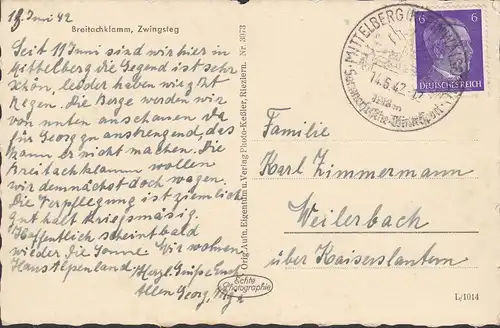 18. Juni 42
Breitachklamm, Zwingsteg
Seit 11 Juni sind wir hier in
Mittelberg die Gegend ist sehr
schön, leider haben wir jetzt
Regen. Die Berge werden wir
von unten anschauen da
für Georg zu anstrengend, das
kann er nicht machen. Die
Breitachklamm wollen
wir demnächst doch wagen.
Die Verpflegung ist ziemlich
gut halt kriegsmäsig.
Hoffentlich scheint bald
wieder die Sonne. Wir wohnen
Haus Alpenland. Herzl. Grüße Euch
Allen Georg,
Orig. Aufn. Eigentum u. Verlag Photo-Keßler, Riezlern. Nr. 3073
Echte
Photographie
MITTELBERG
14.6.42
Sommerfrische-Wintersport
6 6
DEUTSCHES REICH
Familie
Karl Zimmermann
Weilerbach
über Kaiserslautern
L/1014